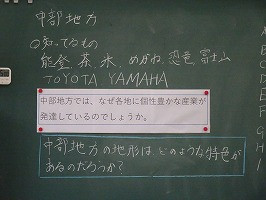 中部地方
○知ってるもの
能登、茶、米、めがね、恐竜、富士山
TOYOTA、YAMAHA
中部地方では、なぜ各地に個性豊かな産業が
発達しているのでしょうか。
中部地方の地形はどのような特色が
あるのだろうか?
A
B
C
D
E
F
G
H
I